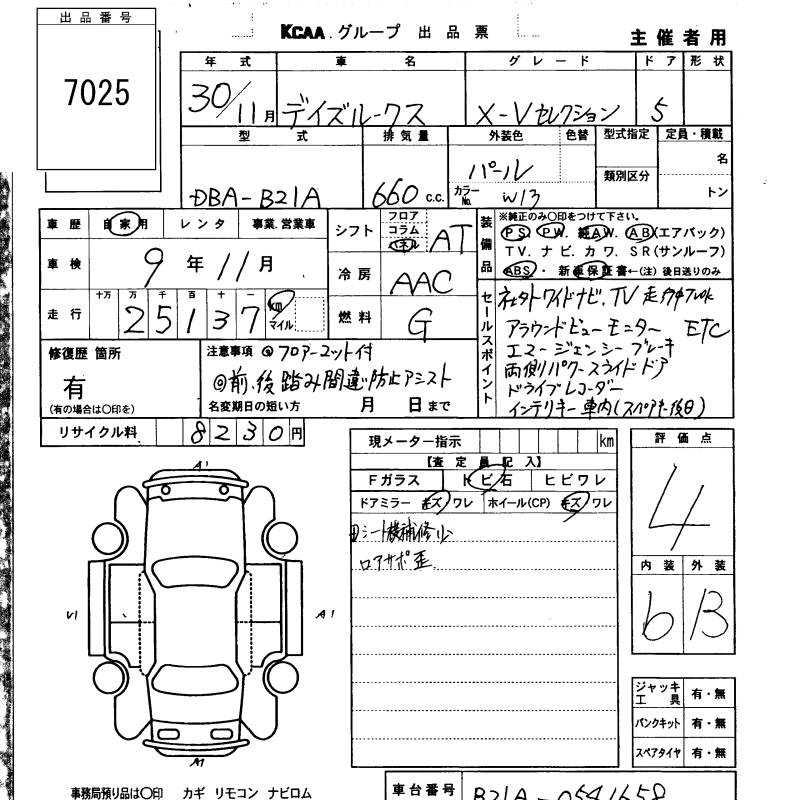 出品番号
7025
KCAA グループ 出品票
主催者用
年式 車名 グレード ドア 形状
30/11月 デイズルークス X-Vセレクション 5
型式 排気量 外装色 色替 型式指定 定員・積載
DBA-B21A 660 c.c. パール カラーNo. W13 類別区分 名
トン
車歴 自家用 レンタ 事業.営業車
車検 9年11月
走行 十万 万 千 百 十 一
25137 km マイル
シフト フロア コラム パネル AT
冷房 AAC
燃料 G
装備品 ※純正のみ〇印をつけて下さい。
PS. PW. 純AW. AB(エアバック)
TV. ナビ. カワ. SR(サンルーフ)
ABS・新車保証書←(注)後日送りのみ
セールスポイント
社外ワイドナビ. TV
アラウンドビューモニター ETC
エマージェンシーブレーキ
両側パワースライドドア
ドライブレコーダー
インテリキー車内(スペアキー後日)
修復歴 箇所
有
(有の場合は〇印を)
注意事項 ◎フロアーマット付
◎前、後踏み間違い防止アシスト
名変期日の短い方 月 日まで
リサイクル料 8230円
現メーター指示 km
【査定員記入】
Fガラス トビ石 ヒビワレ
ドアミラー キズ ワレ ホイール(CP) キズ ワレ
ロアサポ歪
評価点
4
内装 外装
b B
A1
U1
A1
A1
ジャッキ工具 有・無
パンクキット 有・無
スペアタイヤ 有・無
事務局預り品は〇印 カギ リモコン ナビロム
車台番号 B21A-0541658